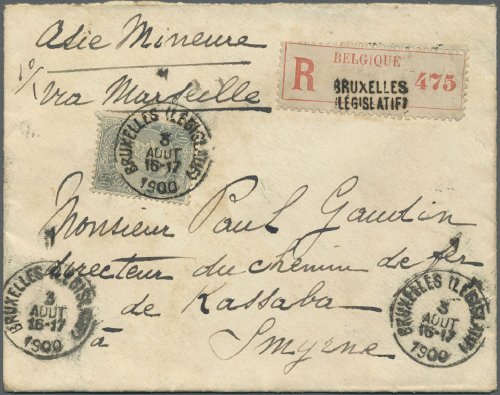 Asie Mineure
via Marseille
R
BELGIQUE
BRUXELLES
(LÉGISLATIF)
475
BRUXELLES (LÉGISLATIF)
3
AOUT
16-17
1900
Monsieur Paul Gaudin
directeur du chemin de fer
de Kassaba
à Smyrne
BRUXELLES (LÉGISLATIF)
3
AOUT
16-17
1900
BRUXELLES (LÉGISLATIF)
3
AOUT
16-17
1900